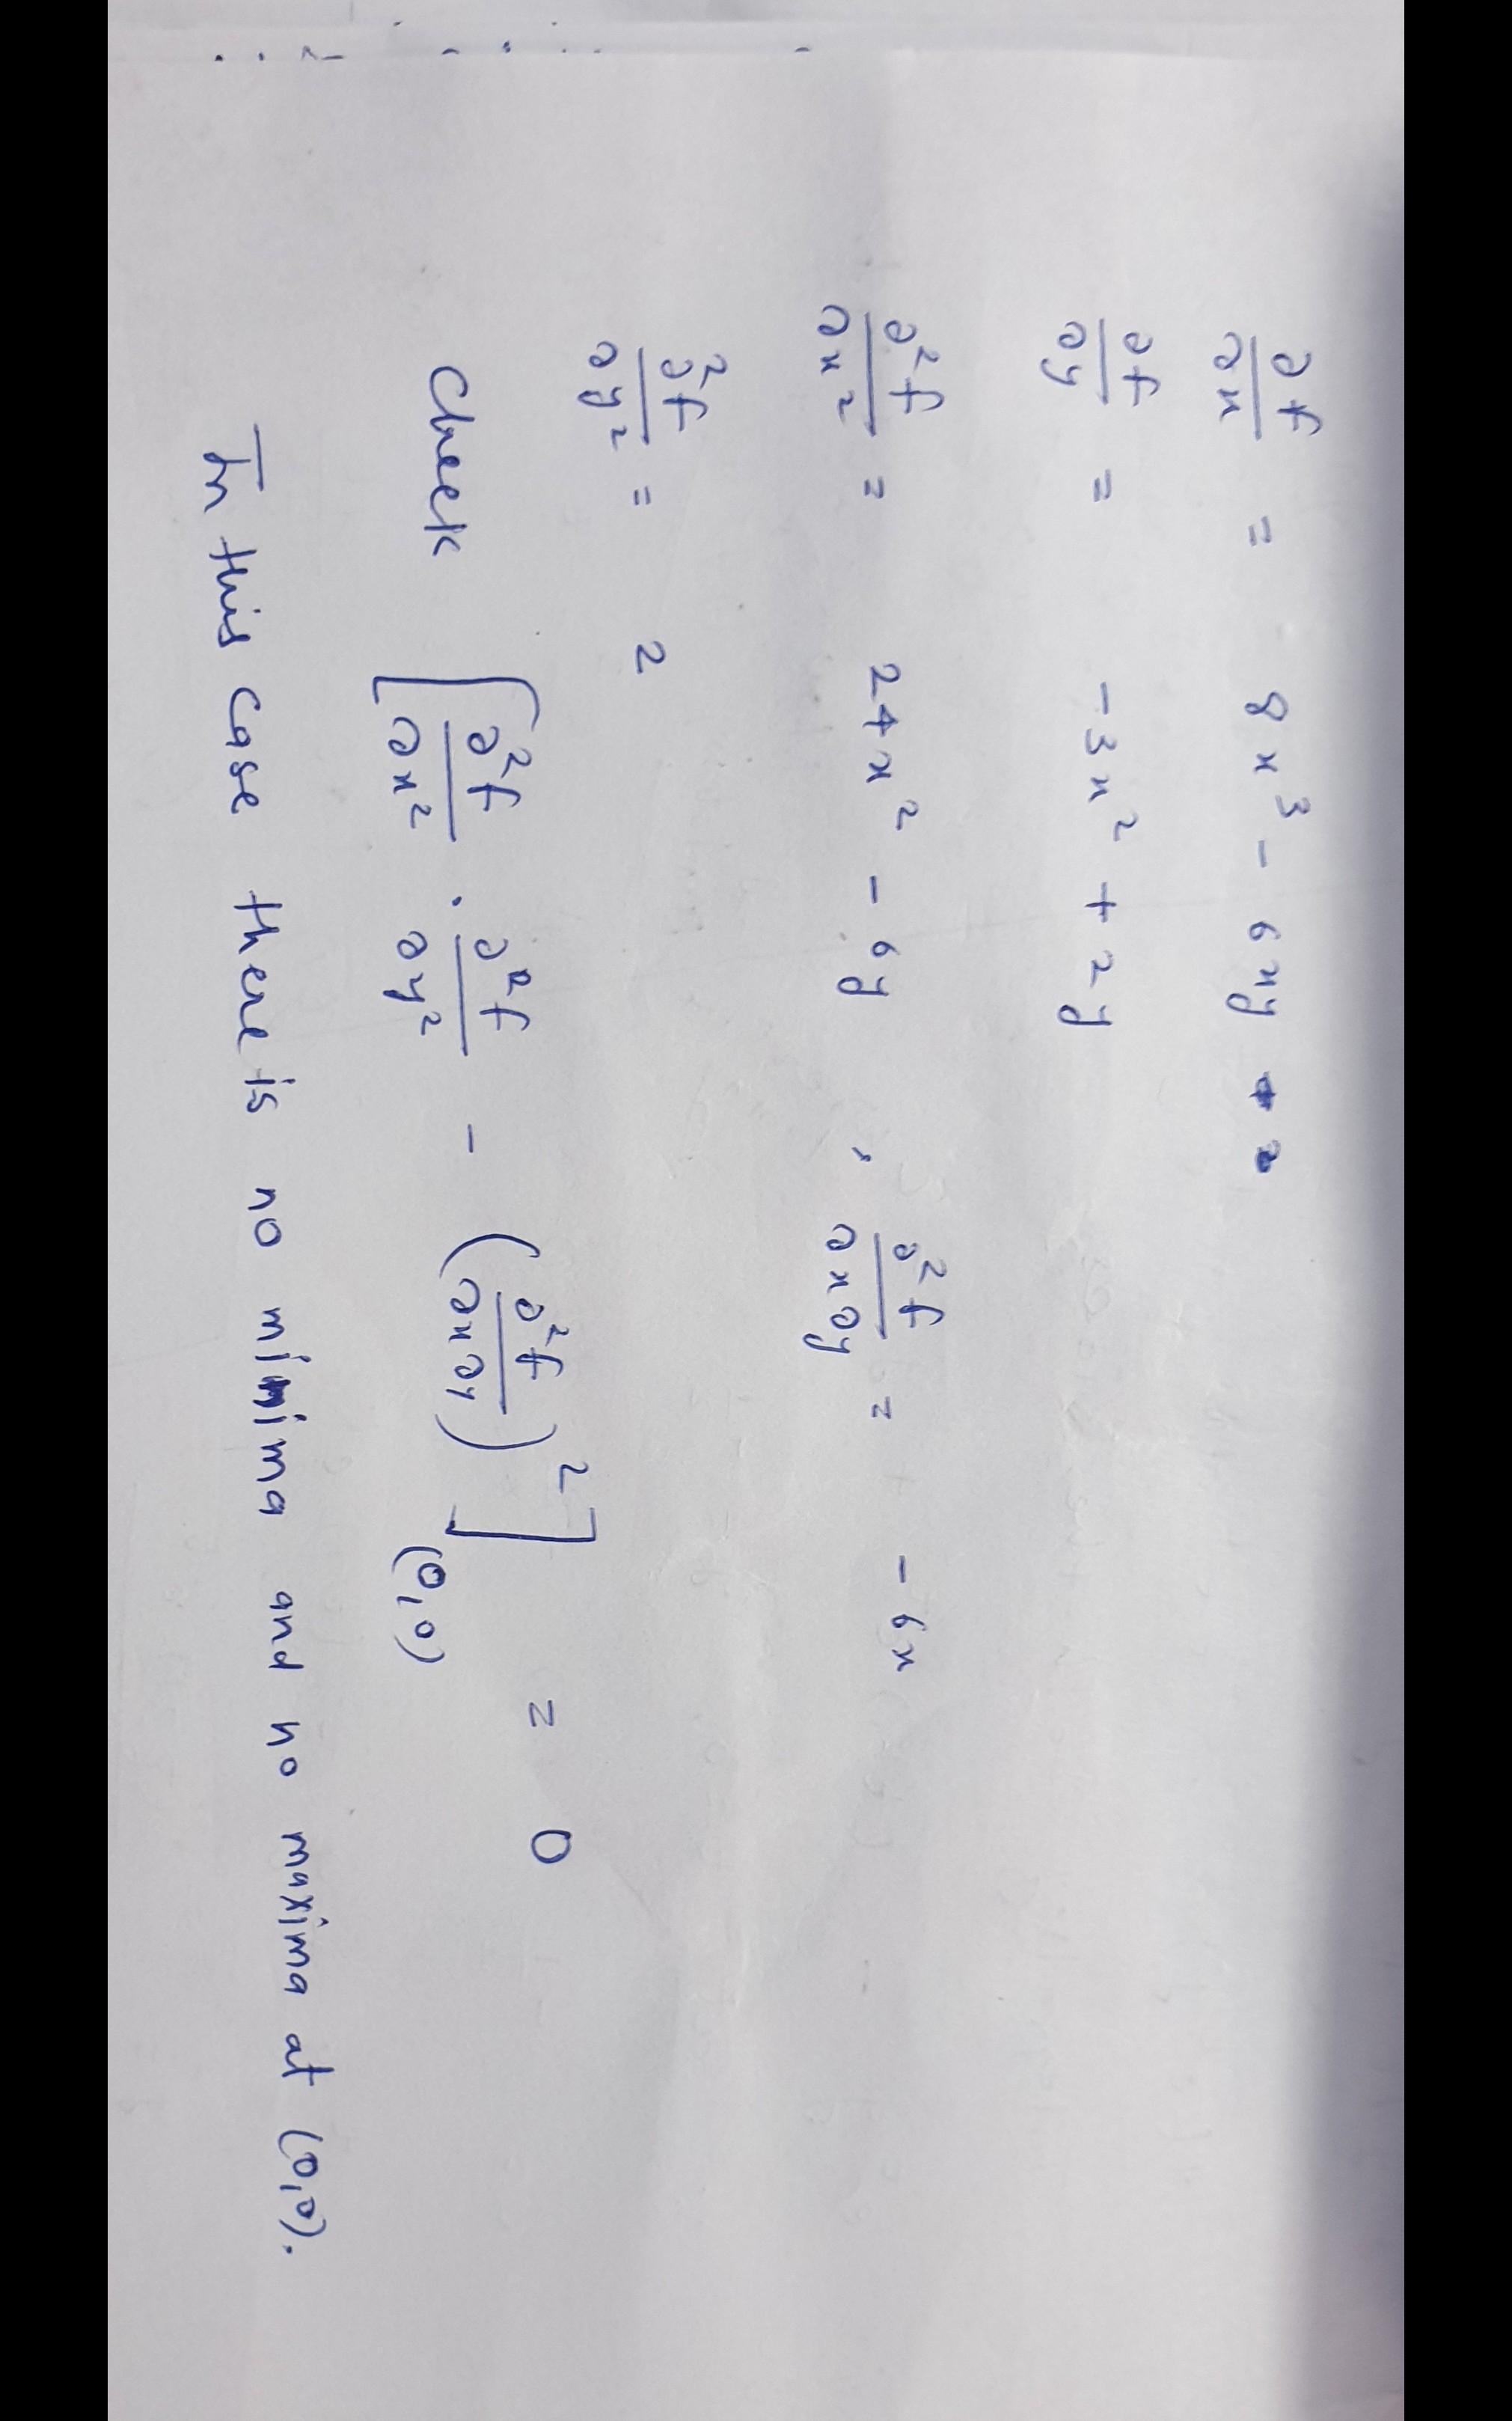 ∂f/∂x = 8x³ - 6xy
∂f/∂y = -3x² + 2y
∂²f/∂x² = 24x² - 6y , ∂²f/∂x∂y = -6x
∂²f/∂y² = 2
Check [∂²f/∂x² · ∂²f/∂y² - (∂²f/∂x∂y)²](0,0) = 0
In this case there is no minima and no maxima at (0,0).